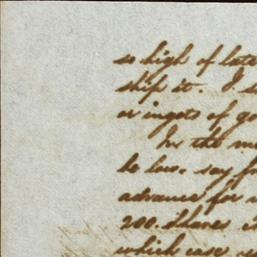 so high of late
ship it. I
or ingots of go
In the m
be low. say f
advance for
200. Shares i
which case